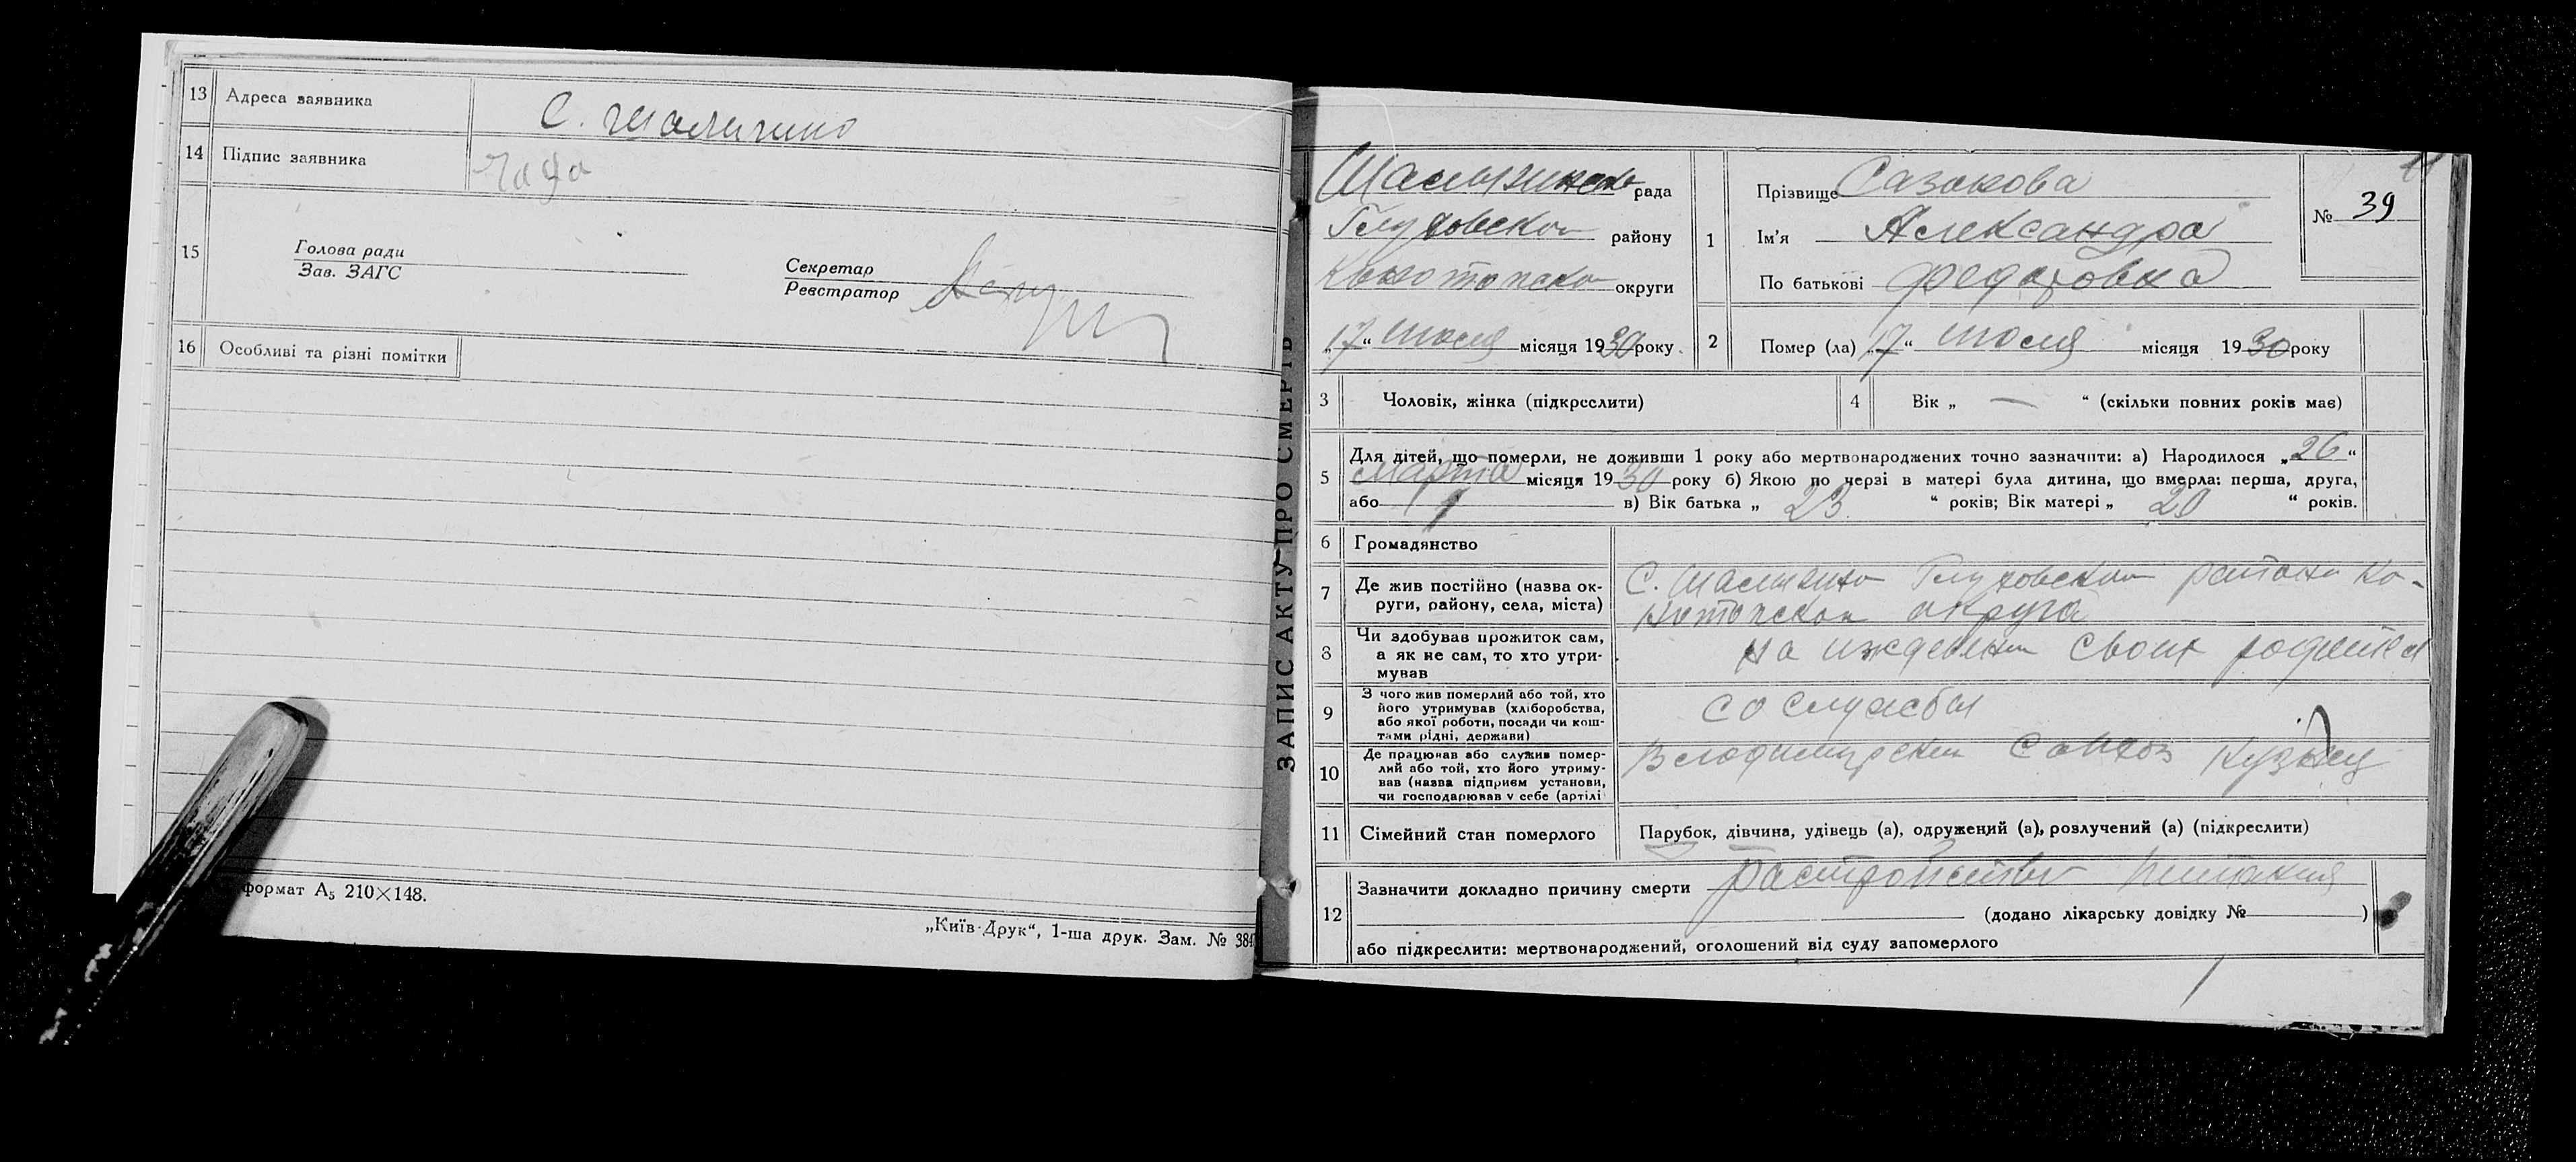 13 Адреса заявника С. Шалигино
14 Підпис заявника
15 Голова ради
Зав. ЗАГС
Секретар
Реєстратор
16 Особливі та різні помітки
формат А5 210×148.
„Київ-Друк“, 1-ша друк. Зам. № 384
ЗАПИС АКТУ ПРО СМЕРТЬ
рада
Глуховского району
округи
„17“ июля місяця 1930 року.
1 Прізвище Сазакова
Ім'я Александра
По батькові Федоровна
№ 39
2 Помер (ла) „17“ июля місяця 1930 року
3 Чоловік, жінка (підкреслити)
4 Вік „ — “ (скільки повних років має)
5 Для дітей, що померли, не доживши 1 року або мертвонароджених точно зазначити: а) Народилося „26“
марта місяця 1930 року б) Якою по черзі в матері була дитина, що вмерла: перша, друга,
або 1 в) Вік батька „ 23 “ років; Вік матері „ 20 “ років.
6 Громадянство
7 Де жив постійно (назва ок-
руги, району, села, міста)
С. Шалыгино Глуховского района Ко-
нотопской округа
8 Чи здобував прожиток сам,
а як не сам, то хто утри-
мував
на иждевении своих родител
9 З чого жив померлий або той, хто
його утримував (хліборобства,
або якої роботи, посади чи кош-
тами рідні, держави)
со службы
10 Де працював або служив помер-
лий або той, хто його утриму-
вав (назва підприєм установи,
чи господарював у себе (артілі
совхоз
11 Сімейний стан померлого
Парубок, дівчина, удівець (а), одружений (а), розлучений (а) (підкреслити)
12 Зазначити докладно причину смерти растройство питания
(додано лікарську довідку № )
або підкреслити: мертвонароджений, оголошений від суду запомерлого